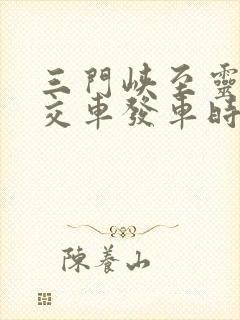 三門峽至靈
交車發車時
陳養山